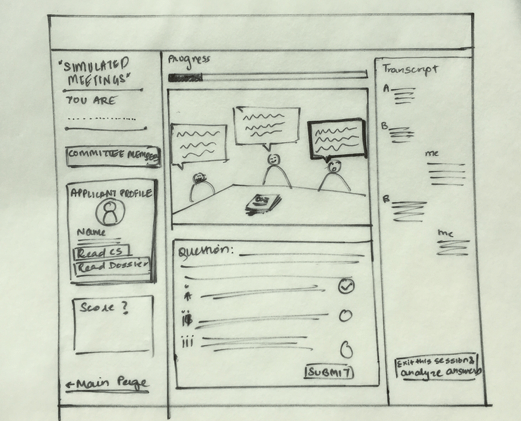 "SIMULATED
MEETINGS"
YOU ARE
COMMITTEE MEMBER
APPLICANT PROFILE
Name
Read CS
Read Dossier
Score?
←Main Page
Progress
Question:
i
ii
iii
SUBMIT
Transcript
A
B
me
B
me
Exit this session &
analyze answers